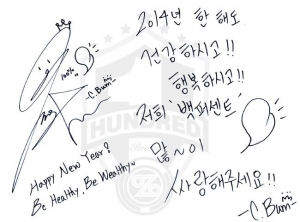 2014년 한 해도
건강하시고!!
행복하시고!!
저희 '백퍼센트'
많~이
사랑해주세요!!
-C.Bum
100%
-C.Bum
Happy New Year!
Be Healthy, Be Wealthy~
HUNDRED